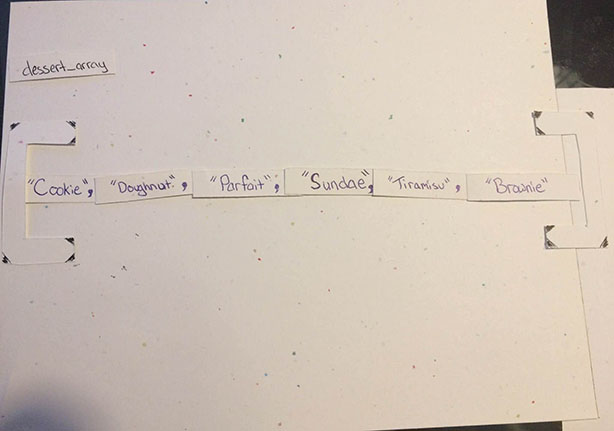 dessert_array
"Cookie", "Doughnut", "Parfait", "Sundae", "Tiramisu", "Brownie"